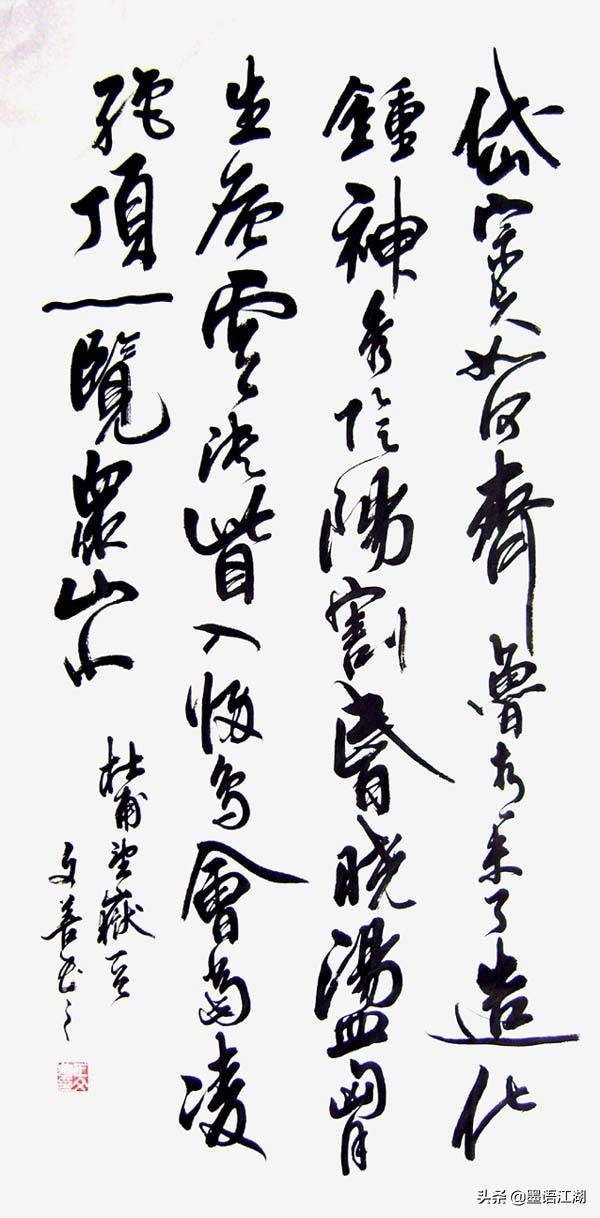 岱宗夫如何齊魯青未了造化
鍾神秀陰陽割昏曉盪胷
生層雲決眥入歸鳥會當凌
絕頂一覽眾山小
杜甫望嶽一首
文善書之
头条 @墨语江湖